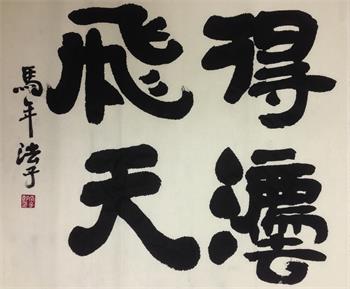 得澐
飛天
馬年法子